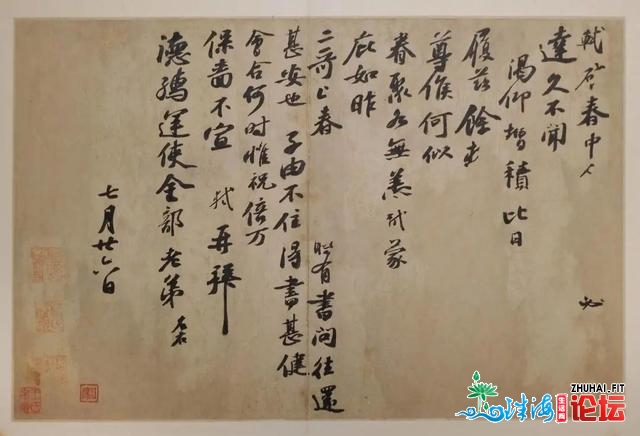 軾啓春中人必
達久不聞
渴仰增積比日
履茲餘
尊候何似
眷聚各無恙軾蒙
庇如昨
二哥上春 有書問往還
甚安也 子由不住得書甚健
會合何時惟祝倍万
保嗇不宣 軾再拜
德孺運使金部老弟
七月廿六日
ZHUHAI.FIT
珠海生活圈论坛